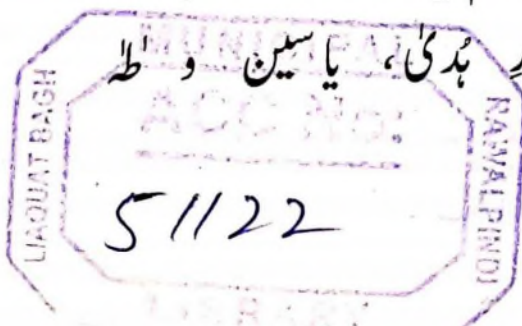 ہُدیٰ، یاسین و طہٰ
MUNICIPAL
ACC No:
LIAQUAT BAGH
RAWALPINDI
51122
LIBRARY